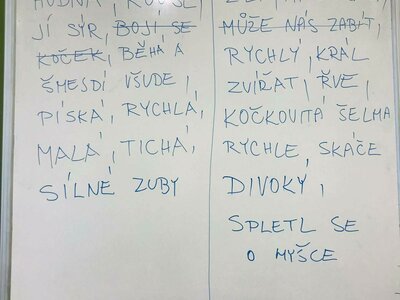 JÍ SÝR, BOJÍ SE
KOČEK, BĚHÁ A
ŠMEJDÍ VŠUDE,
PÍSKÁ, RYCHLÁ,
MALÁ, TICHÁ,
SÍLNÉ ZUBY
MŮŽE NÁS ZABÍT,
RYCHLÝ, KRÁL
ZVÍŘAT, ŘVE,
KOČKOVITÁ ŠELMA
RYCHLE, SKÁČE
DIVOKÝ,
SPLETL SE
O MYŠCE